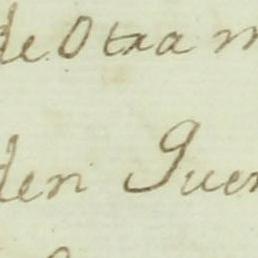 de Otra m
den Guer